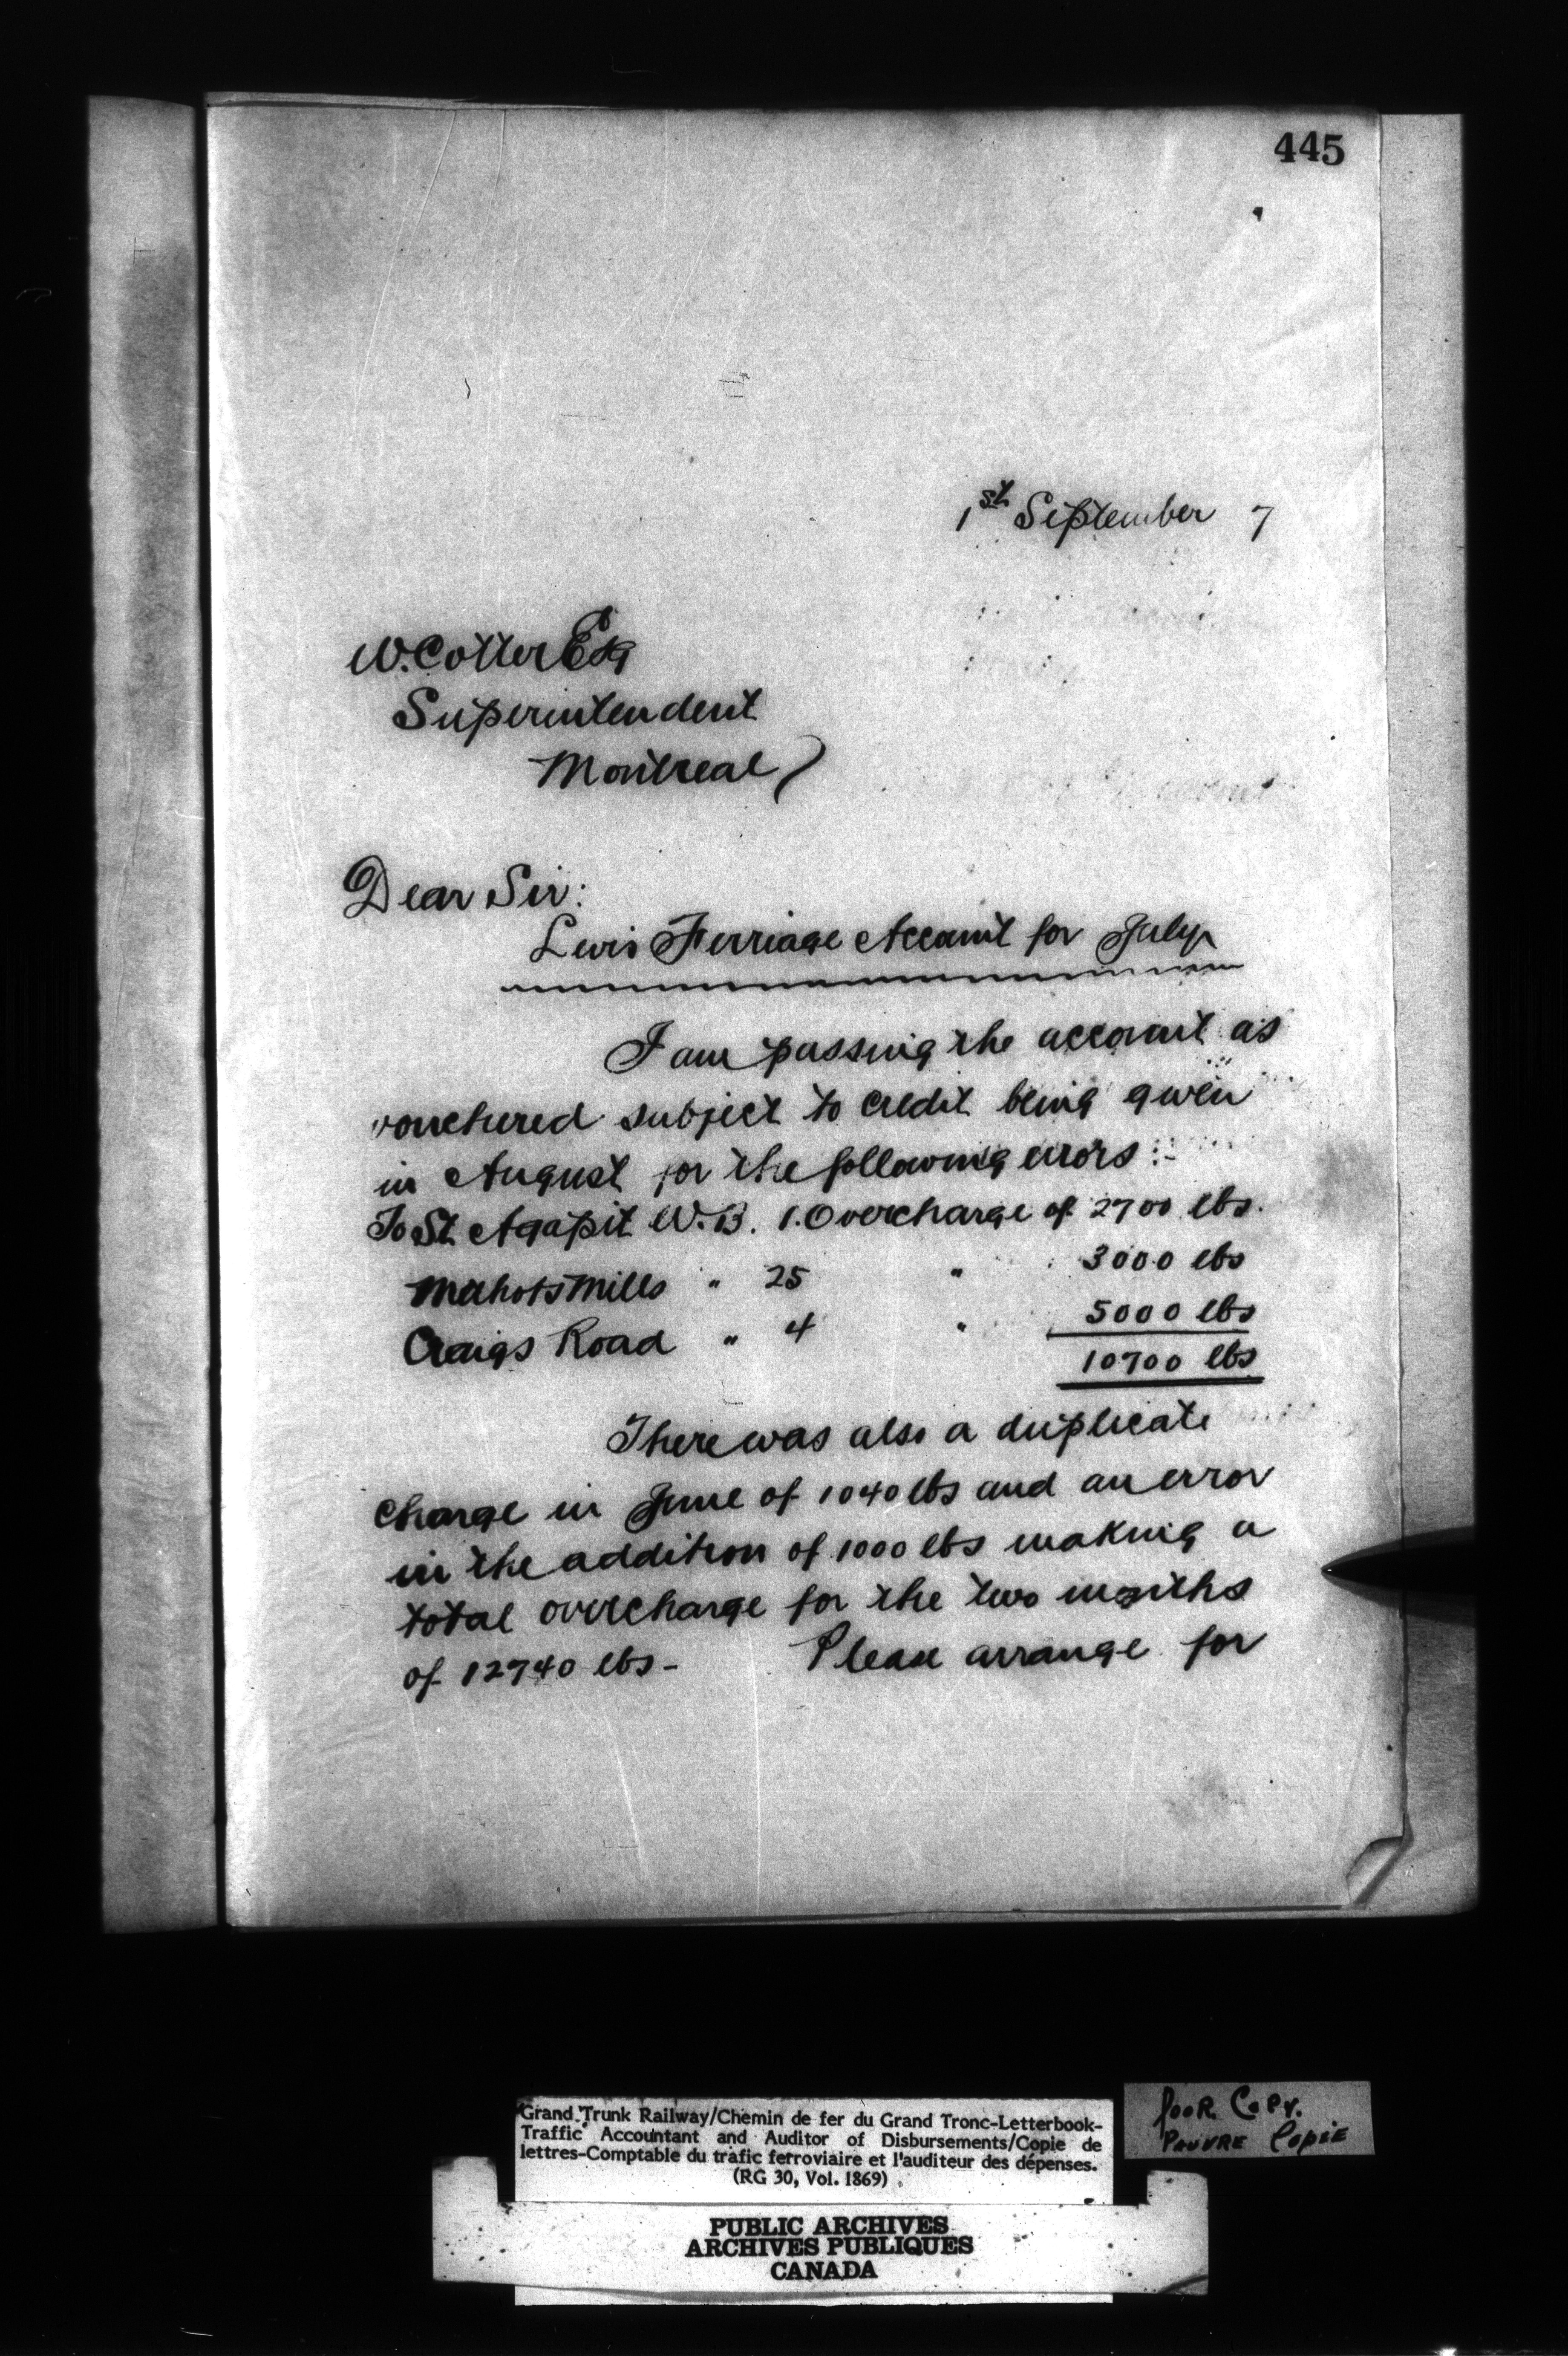 445
1st September 7
W. Cotter Esq
Superintendent
Montreal
Dear Sir:
Levis Ferriage Account for July
I am passing the account as
vouchered subject to credit being given
in August for the following errors :-
To St Agapit W.B. 1. Overcharge of 2700 lbs.
Methots Mills " 25 " 3000 lbs
Craigs Road " 4 " 5000 lbs
10700 lbs
There was also a duplicate
charge in June of 1040 lbs and an error
in the addition of 1000 lbs making a
total overcharge for the two months
of 12740 lbs - Please arrange for
Grand Trunk Railway/Chemin de fer du Grand Tronc-Letterbook-
Traffic Accountant and Auditor of Disbursements/Copie de
lettres-Comptable du trafic ferroviaire et l'auditeur des dépenses.
(RG 30, Vol. 1869)
POOR COPY.
PAUVRE COPIE
PUBLIC ARCHIVES
ARCHIVES PUBLIQUES
CANADA